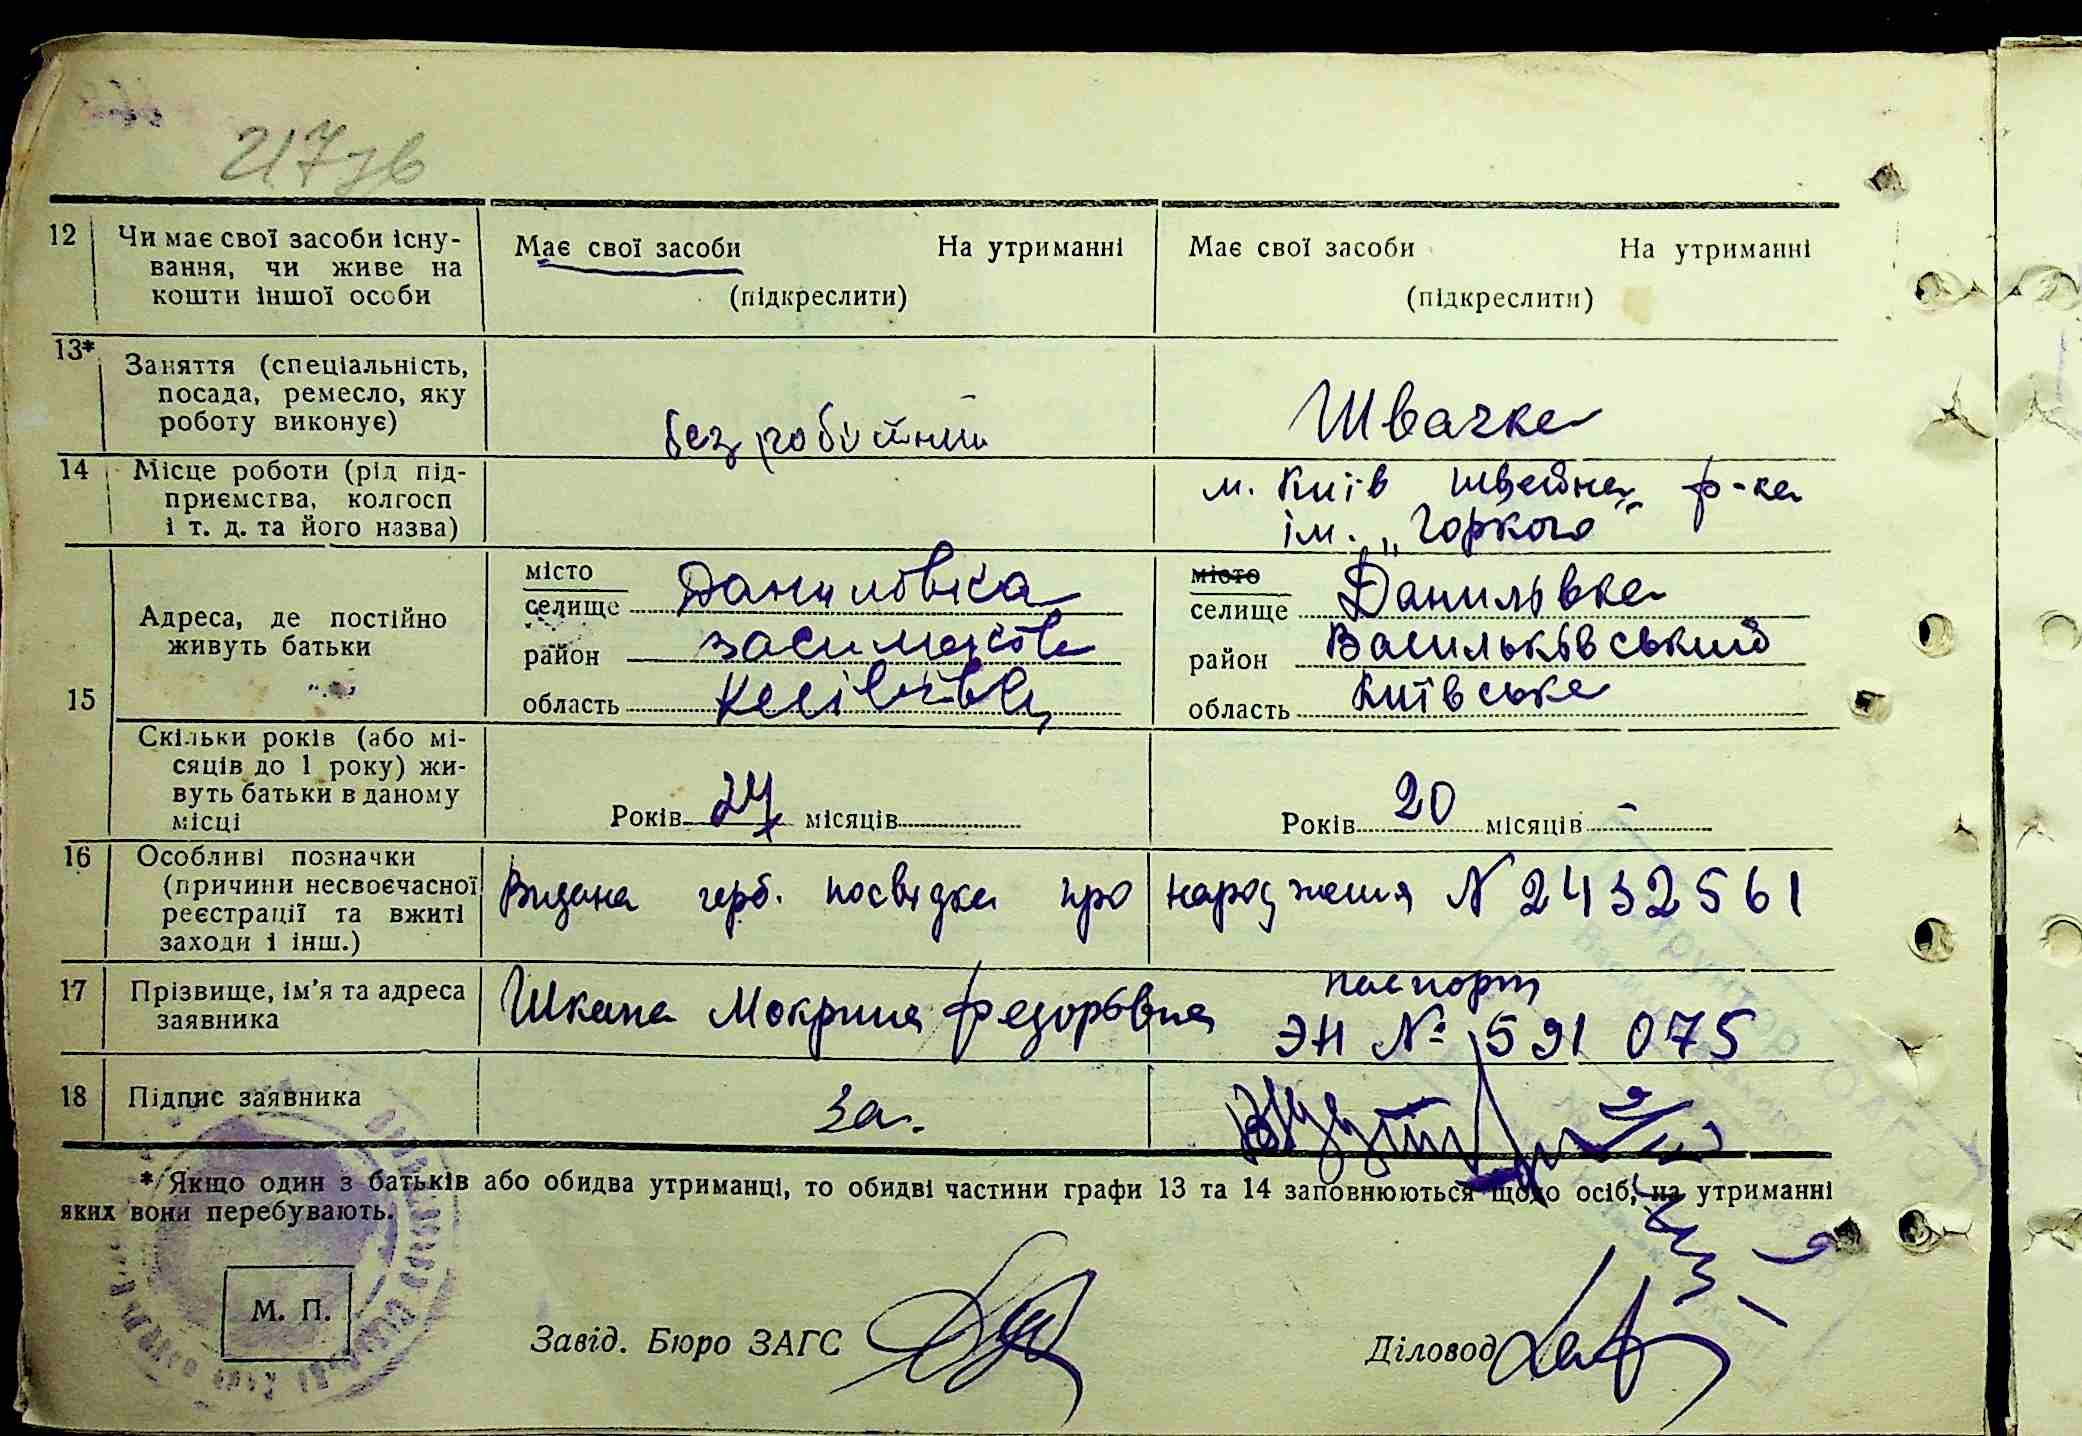 217зв
12 Чи має свої засоби існування, чи живе на кошти іншої особи
Має свої засоби На утриманні
(підкреслити)
Має свої засоби На утриманні
(підкреслити)
13* Заняття (спеціальність,
посада, ремесло, яку
роботу виконує)
безробітний
Швачка
14 Місце роботи (рід під-
приємства, колгосп
і т. д. та його назва)
м. Київ швейна ф-ка
ім. „Горкого"
15
Адреса, де постійно
живуть батьки
місто
селище Данилівка
район
область
місто
селище Данилівка
район Васильківський
область Київська
Скільки років (або мі-
сяців до 1 року) жи-
вуть батьки в даному
місці
Років 24 місяців
Років 20 місяців -
16 Особливі позначки
(причини несвоєчасної
реєстрації та вжиті
заходи і інш.)
Видана герб. посвідка про народження N 2432561
17 Прізвище, ім'я та адреса
заявника
Шкапа Мокрина Федорівна
паспорт
ЭН № 591 075
18 Підпис заявника
За.
* Якщо один з батьків або обидва утриманці, то обидві частини графи 13 та 14 заповнюються щодо осіб, на утриманні
яких вони перебувають.
М. П.
Завід. Бюро ЗАГС
Діловод